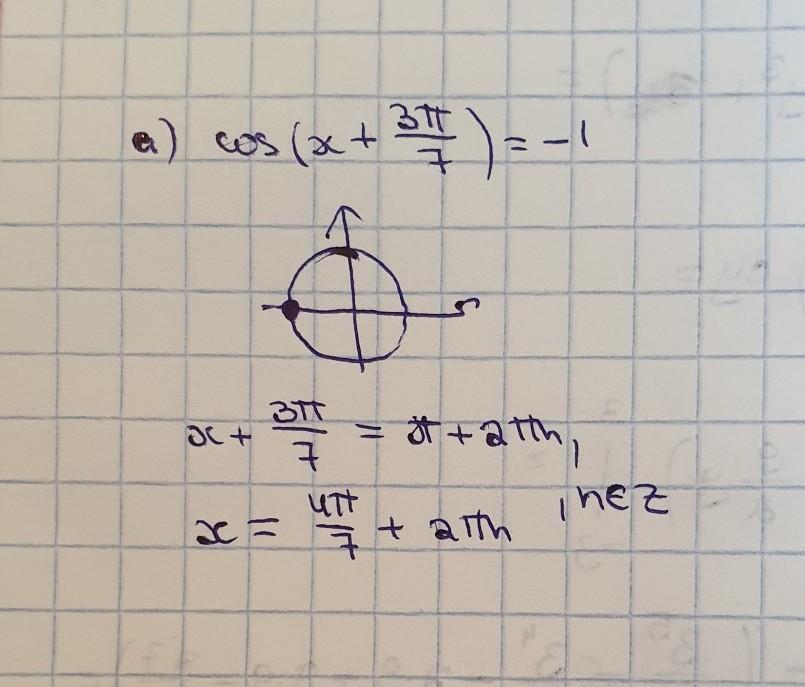 а) cos(x + 3π/7) = -1
x + 3π/7 = π + 2πn,
x = 4π/7 + 2πn , n∈Z